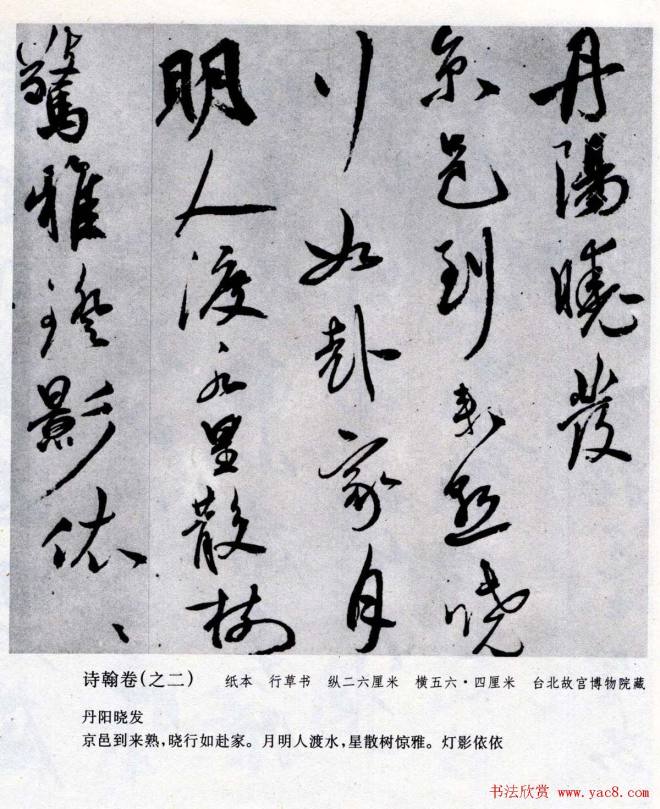 丹陽曉發
京邑到來熟曉
行如赴家月
明人渡水星散樹
驚雅燈影依、
诗翰卷(之二) 纸本 行草书 纵二六厘米 横五六·四厘米 台北故宫博物院藏
丹阳晓发
京邑到来熟,晓行如赴家。月明人渡水,星散树惊雅。灯影依依
书法欣赏 www.yac8.com